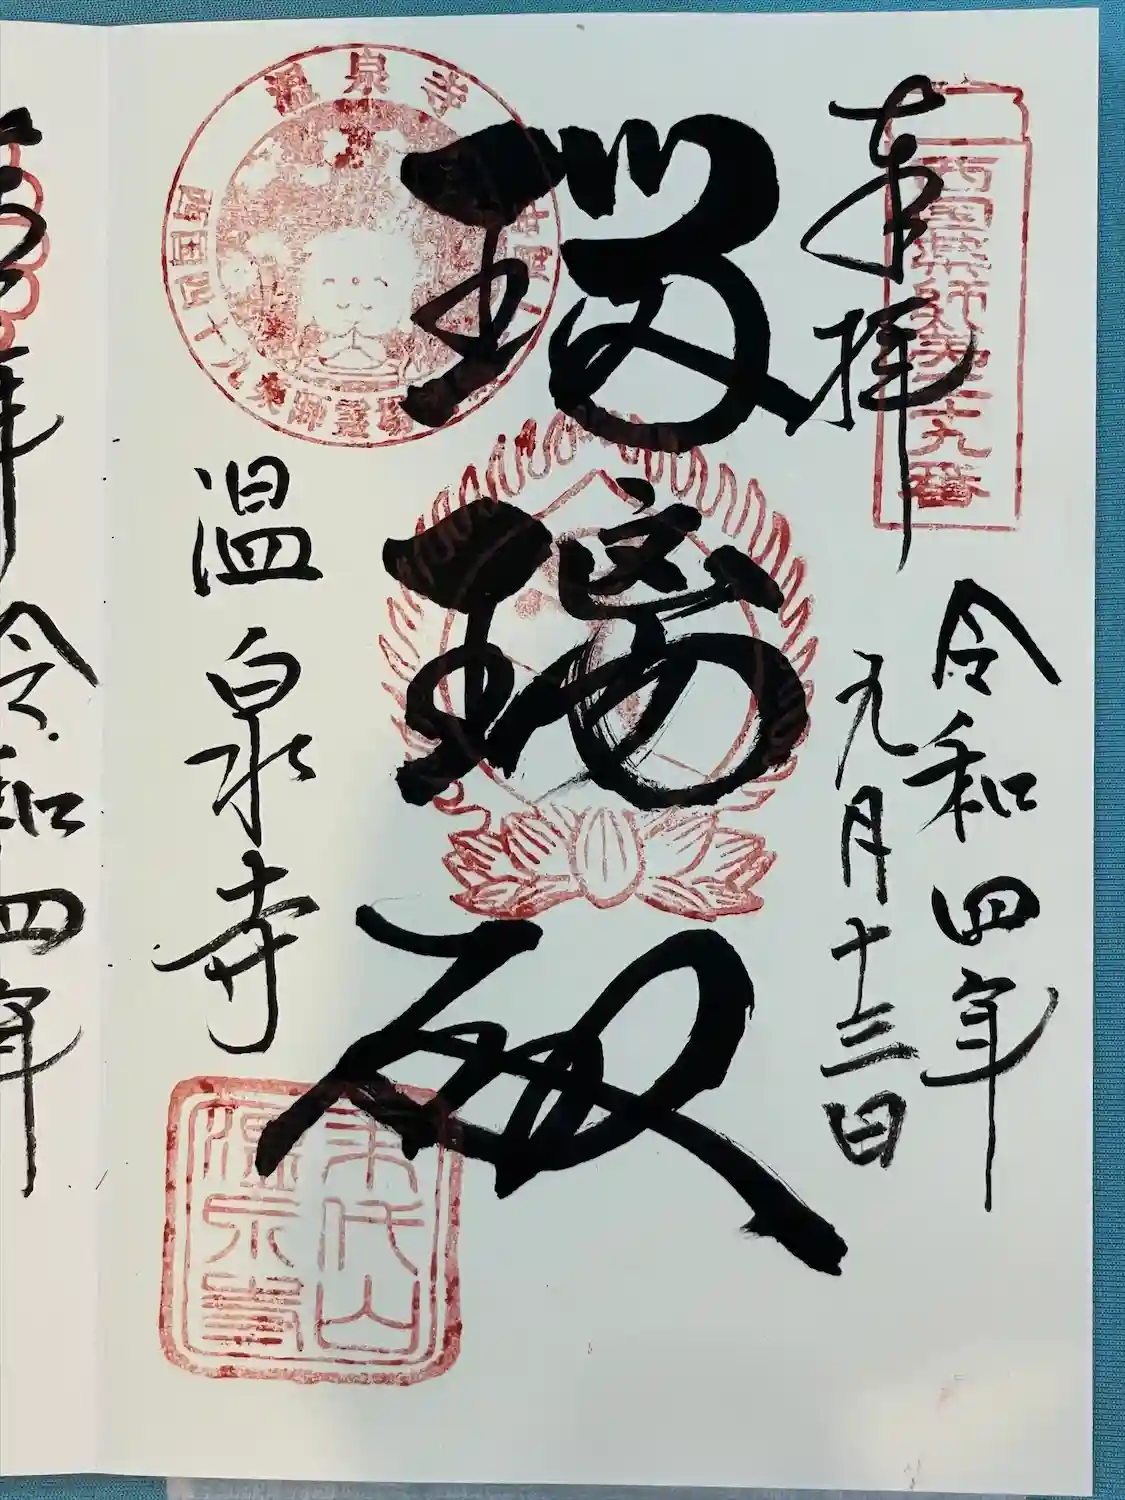 西国薬師第二十九番
奉拝
令和四年
九月十三日
瑠璃殿
温泉寺
西国四十九薬師霊場
温泉寺
末代山
温泉寺
令和四年